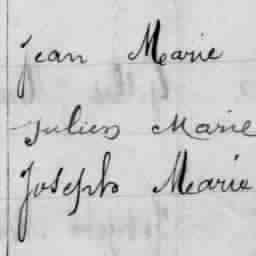 Jean Marie
Julien Marie
Joseph Marie